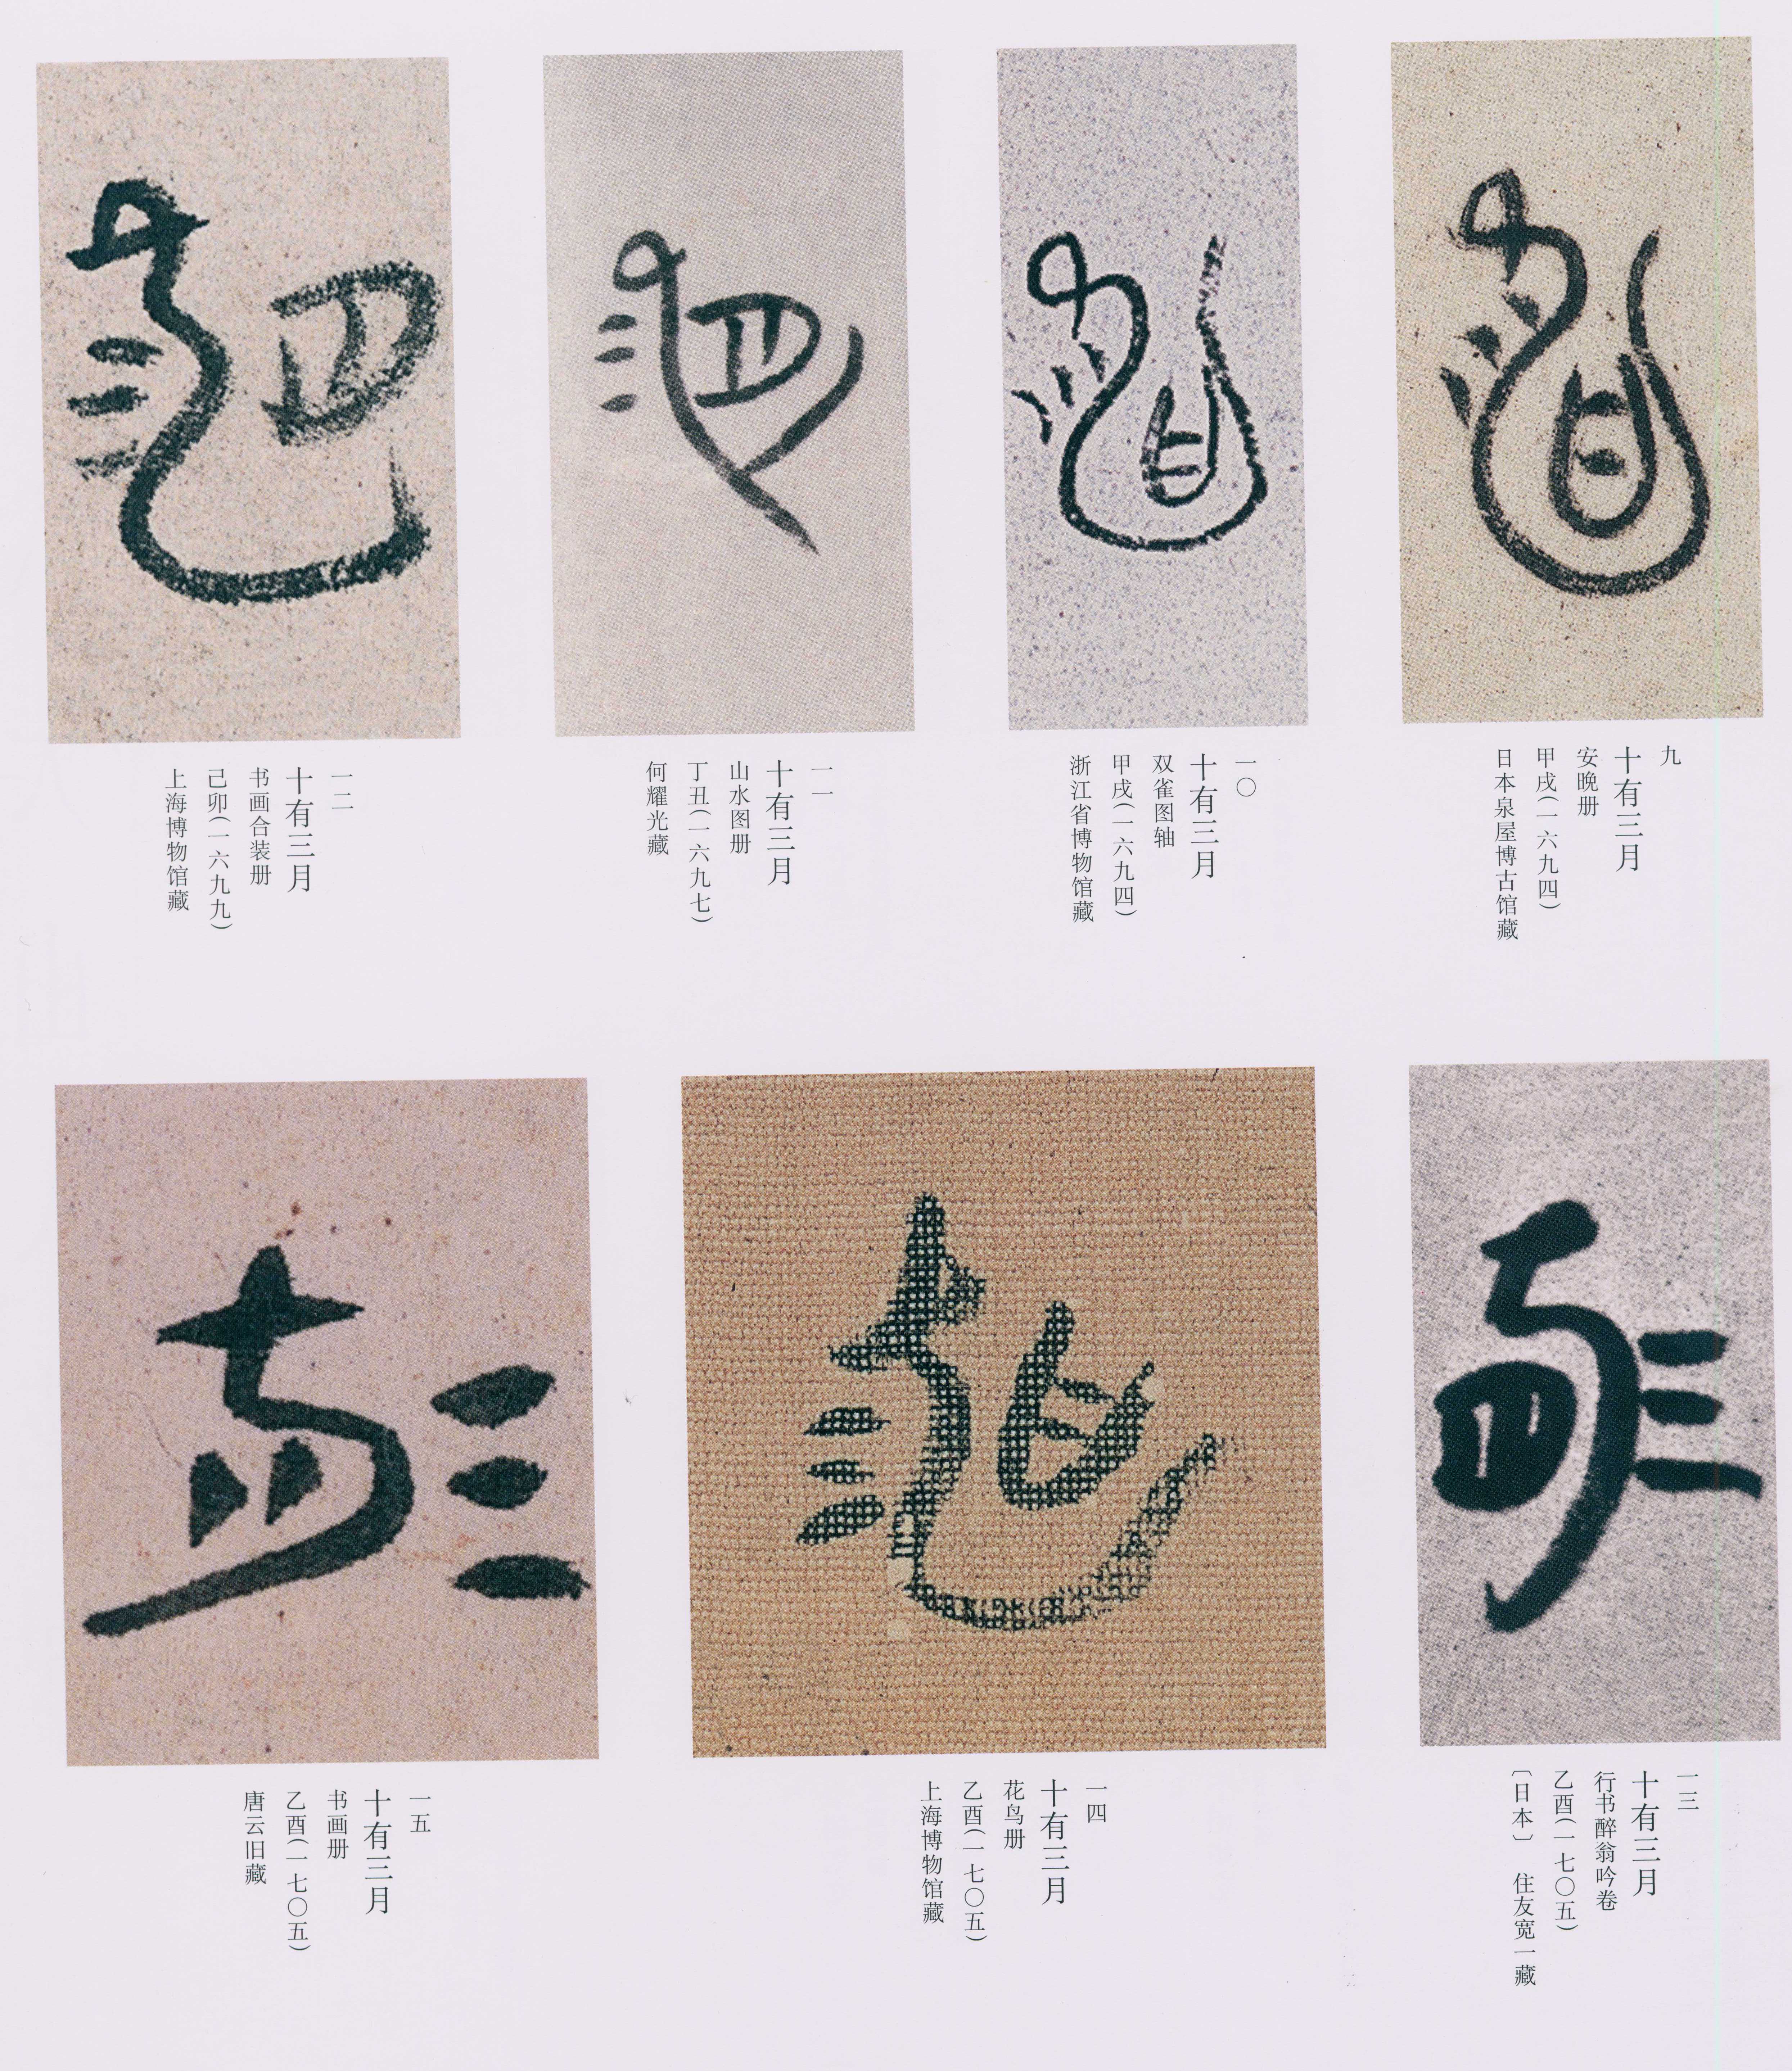 九
十有三月
安晚册
甲戌(一六九四)
日本泉屋博古馆藏
一〇
十有三月
双雀图轴
甲戌(一六九四)
浙江省博物馆藏
一一
十有三月
山水图册
丁丑(一六九七)
何耀光藏
一二
十有三月
书画合装册
己卯(一六九九)
上海博物馆藏
一三
十有三月
行书醉翁吟卷
乙酉(一七〇五)
〔日本〕 住友宽一藏
一四
十有三月
花鸟册
乙酉(一七〇五)
上海博物馆藏
一五
十有三月
书画册
乙酉(一七〇五)
唐云旧藏